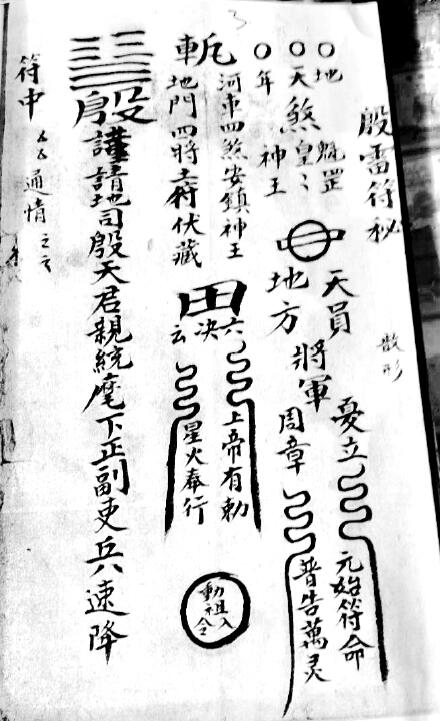 殷雷符秘
散形
○地魁罡
○天煞皇〻
○年神王
天員
地方
將軍
憂立
周章
元始符命
普告萬灵
斬
河車四煞安鎮神王
地門四將土府伏藏
田
六决云
上帝有勅
星火奉行
動祖入令
殷
謹請地司殷天君親統麾下正副吏兵速降
符中
通情